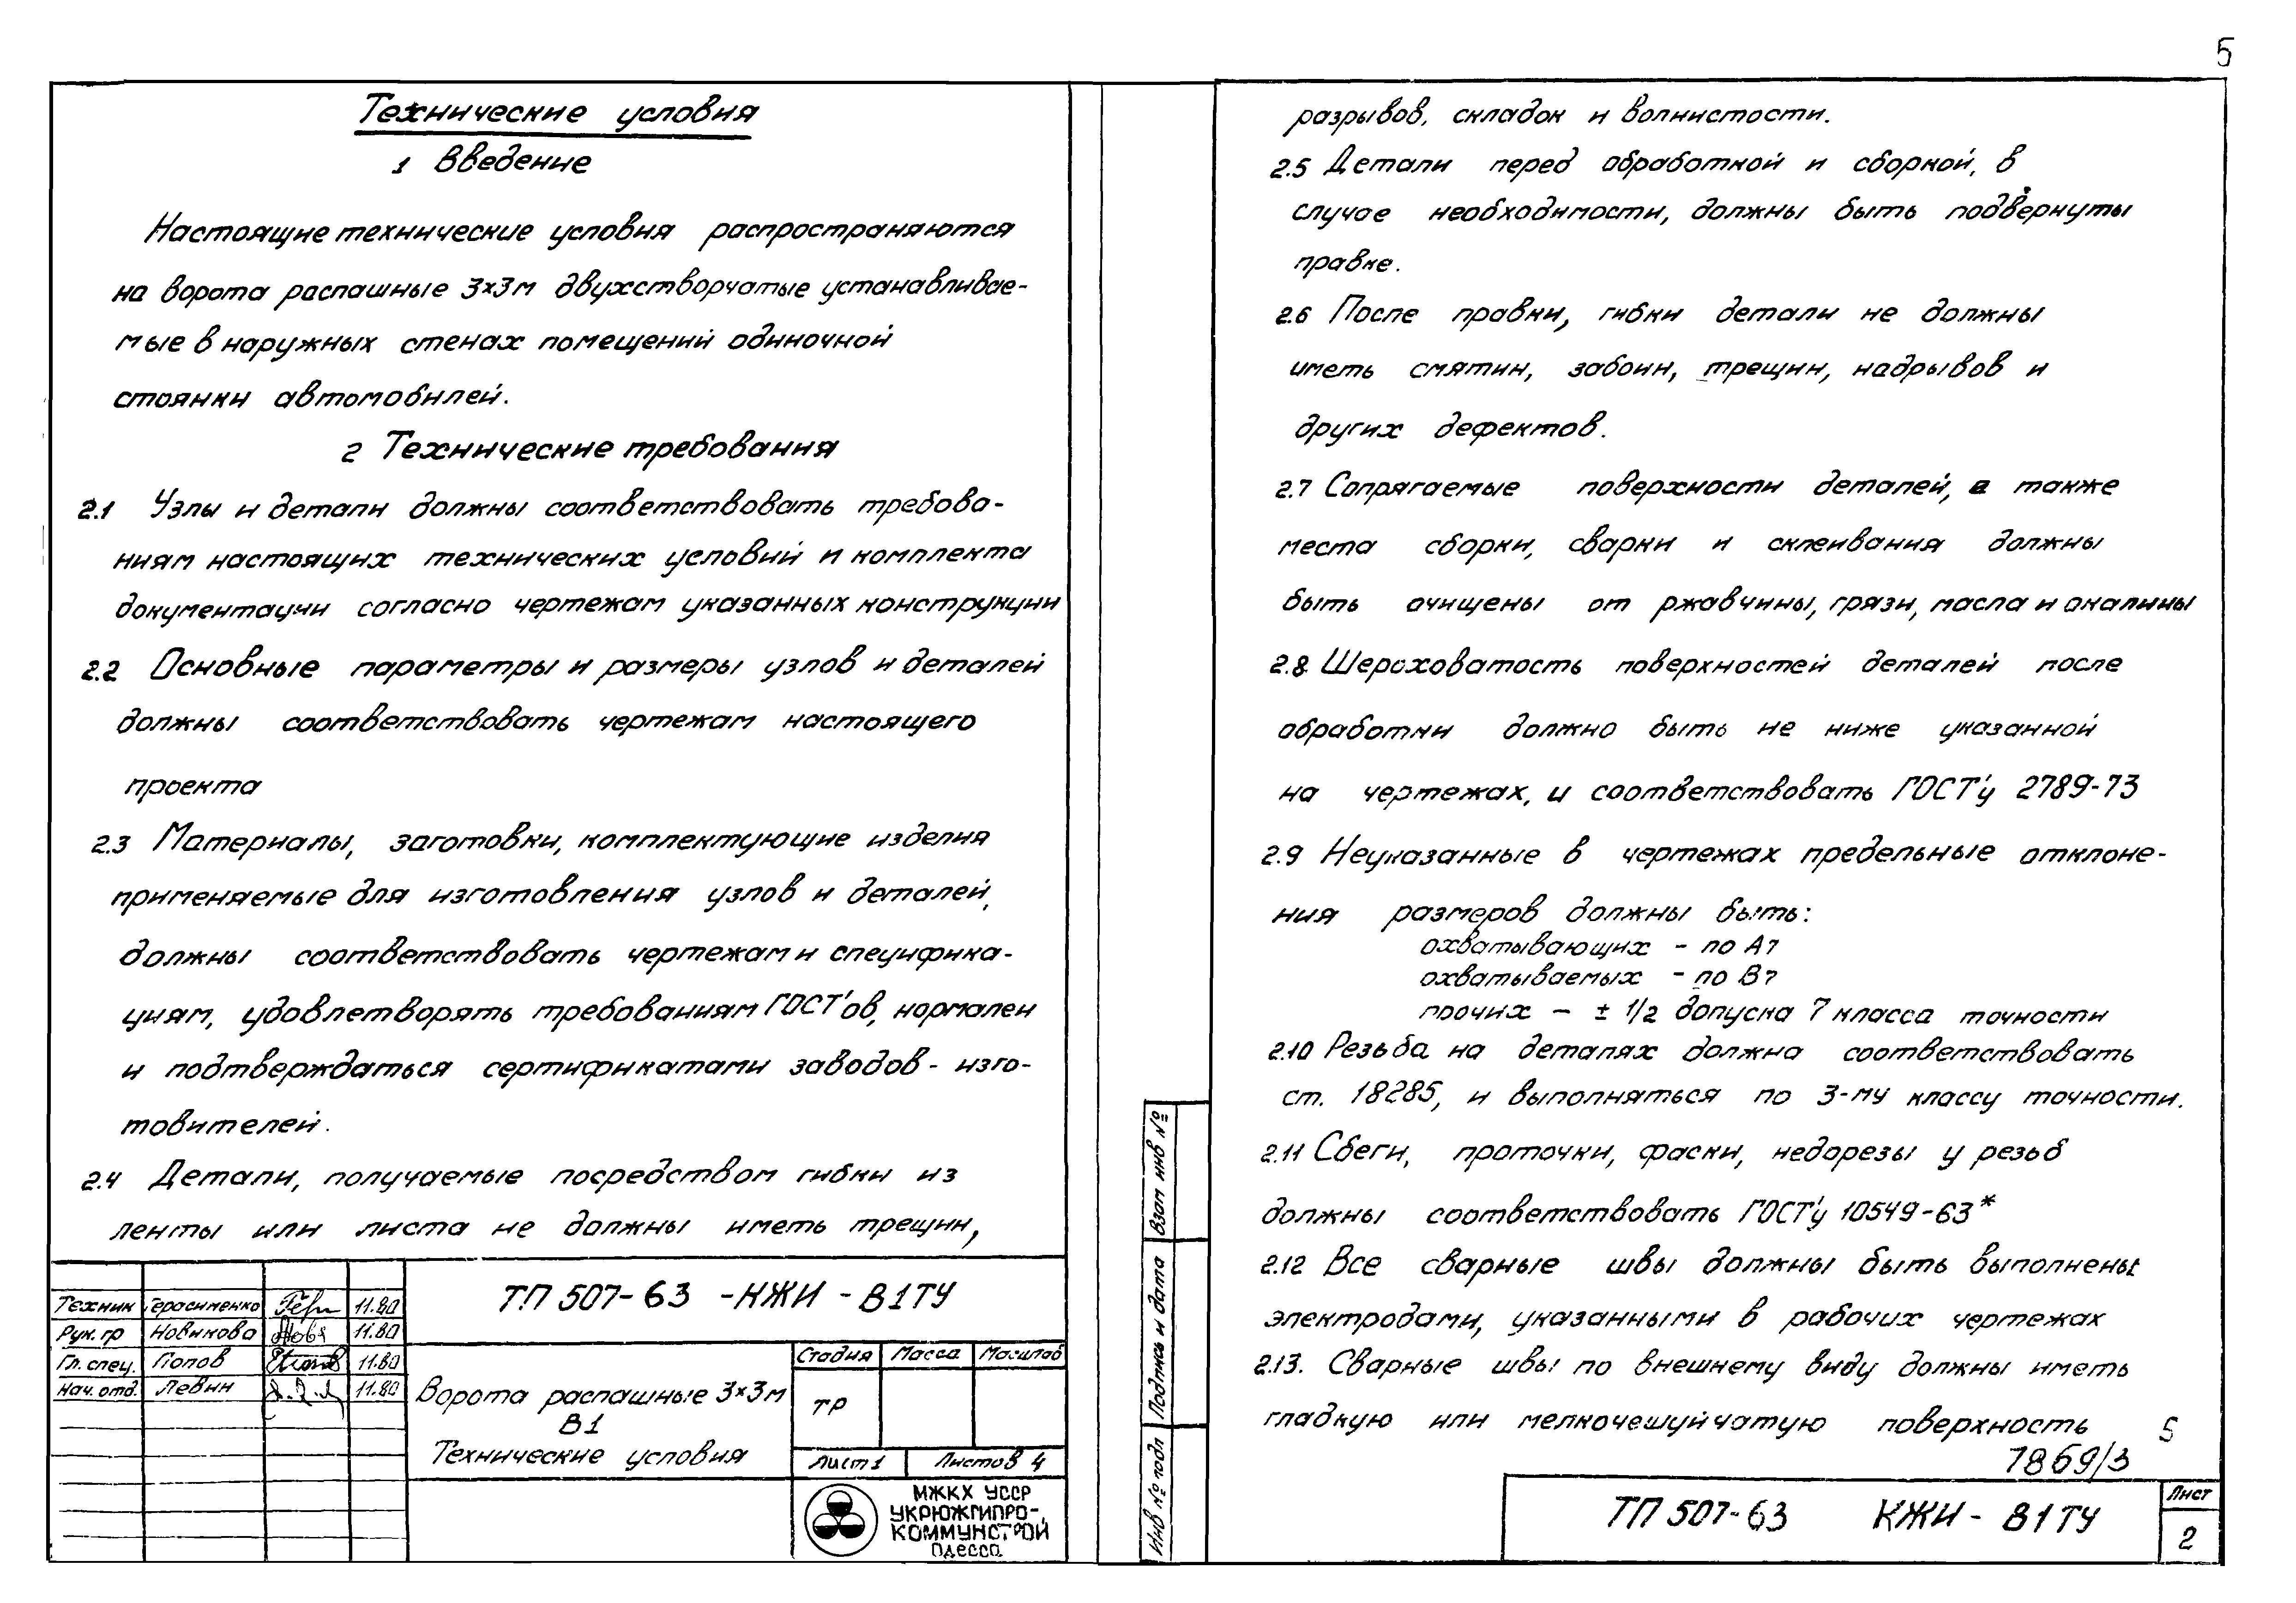 5
Технические условия
1 Введение
Настоящие технические условия распространяются
на ворота распашные 3×3м двухстворчатые устанавливае-
мые в наружных стенах помещений одиночной
стоянки автомобилей.
2 Технические требования
2.1 Узлы и детали должны соответствовать требова-
ниям настоящих технических условий и комплекта
документации согласно чертежам указанных конструкции
2.2 Основные параметры и размеры узлов и деталей
должны соответствовать чертежам настоящего
проекта
2.3 Материалы, заготовки, комплектующие изделия
применяемые для изготовления узлов и деталей,
должны соответствовать чертежам и специфика-
циям, удовлетворять требованиям ГОСТ'ов, нормален
и подтверждаться сертификатами заводов- изго-
товителей.
2.4 Детали, получаемые посредством гибки из
ленты или листа не должны иметь трещин,
Техник Герасименко 11.80
Рук. гр Новикова 11.80
Гл. спец. Попов 11.80
Нач. отд. Левин 11.80
ТП 507-63 -КЖИ - В1ТУ
Ворота распашные 3×3м
В1
Технические условия
Стадия Масса Масштаб
ТР
Лист 1 Листов 4
МЖКХ УССР
УКРЮЖГИПРО-
КОММУНСТРОЙ
Одесса
разрывов, складок и волнистости.
2.5 Детали перед обработкой и сборкой, в
случае необходимости, должны быть подвернуты
правке.
2.6 После правки, гибки детали не должны
иметь смятин, забоин, трещин, надрывов и
других дефектов.
2.7 Сопрягаемые поверхности деталей, а также
места сборки, сварки и склеивания должны
быть очищены от ржавчины, грязи, масла и окалины
2.8 Шероховатость поверхностей деталей после
обработки должно быть не ниже указанной
на чертежах, и соответствовать ГОСТ'у 2789-73
2.9 Неуказанные в чертежах предельные отклоне-
ния размеров должны быть:
охватывающих - по А7
охватываемых - по В7
прочих - ± 1/2 допуска 7 класса точности
2.10 Резьба на деталях должна соответствовать
ст. 18285, и выполняться по 3-му классу точности.
2.11 Сбеги, проточки, фаски, недорезы у резьб
должны соответствовать ГОСТ'у 10549-63*
2.12 Все сварные швы должны быть выполнены
электродами, указанными в рабочих чертежах
2.13. Сварные швы по внешнему виду должны иметь
гладкую или мелкочешуйчатую поверхность
5
7869/3
Взам инв №
Подпись и дата
Инв № подл
ТП 507-63 КЖИ - В1ТУ
Лист
2